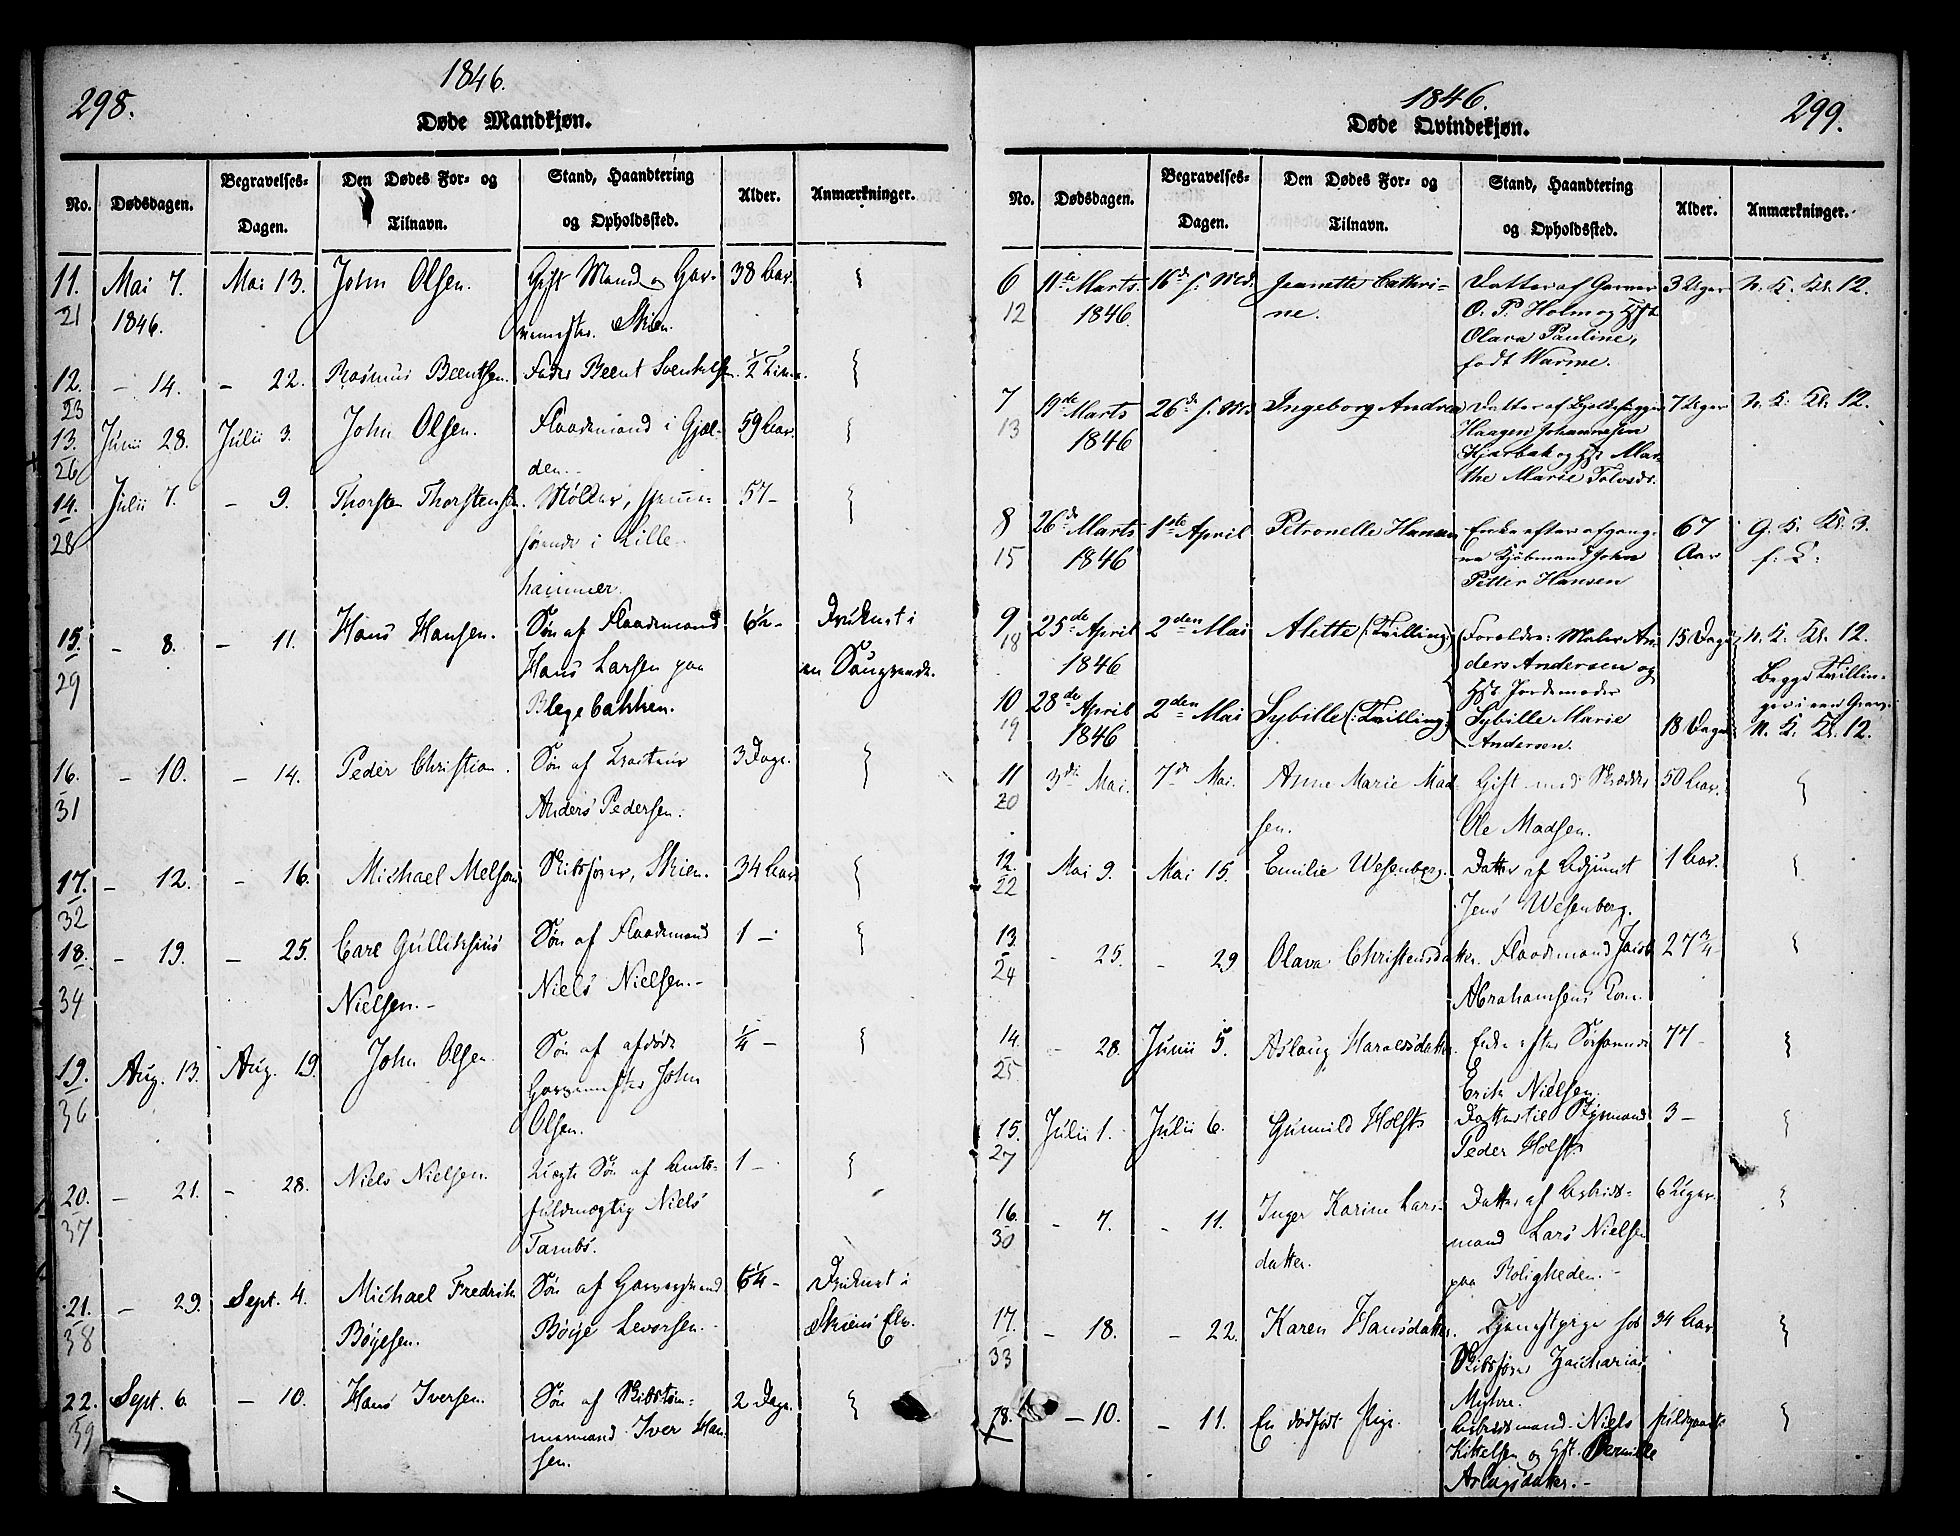 298.
1846.
Døde Mandkjøn.
No. Dødsdagen. Begravelses-Dagen. Den Dødes For- og Tilnavn. Stand, Haandtering og Opholdssted. Alder. Anmærkninger.
11. Mai 7. Mai 13. John Olsen. Gift Mand og Gar- 38 Aar.
21 1846. vermester. Skien.
12. - 14. - 22. Rasmus Beentsen. Fader Beent 1/2 Time.
23
13. Junii 28. Julii 3. John Olsen. Flaademand i Gjæl- 59 Aar.
26 den.
14. Julii 7. - 9. Thorsten Thorstensen. Møller, 57 -
28 i Lille-
hammer.
15. - 8. - 11. Hans Hansen. Søn af Flaademand 6 1/2 - Druknet i
29 Hans Larsen paa en
Blegebakken.
16. - 10. - 14. Peder Christian. Søn af 3 Dage.
31 Anders Pedersen.
17. - 12. - 16. Michael Melsom Skibsfører, Skien. 34 Aar
32
18. - 19. - 25. Carl Gulliksius Søn af Flaademand 1 -
34 Nielsen. - Niels Nielsen. -
19. Aug. 13. Aug. 19. John Olsen. Søn af afdøde 1/4 -
36 Garvermester John
Olsen.
20. - 21. - 28. Niels Nielsen. Uægte Søn af Amts- 1 -
37 fuldmægtig Niels
Tambs.
21. - 29. Sept. 4. Michael Fredrik Søn af 6 1/4 - Druknet i
38 Bøyesen. Bøye Levorsen. Skiens Elv.
22. Sept. 6. - 10. Hans Iversen. Søn af Skibstøm- 2 Dage.
39 mermand Iver Han-
sen.
1846.
299.
Døde Qvindekjøn.
No. Dødsdagen. Begravelses-Dagen. Den Dødes For- og Tilnavn. Stand, Haandtering og Opholdssted. Alder. Anmærkninger.
6 11te Marts 16de s. Md. Jeanette Cathri- Datter af Garver 3 Uger N. K. Kl. 12.
12 1846. ne. O. P. Holm og Hst
Olava Pauline,
født Warme.
7 19de Marts 26de s. Md. Ingeborg Andrea Datter af 7 Uger N. K. Kl. 12.
13 1846 Haagen Johannesen
og Hst Mar-
the Marie
8 26de Marts 1ste April Petronelle Hansen Enke efter afgang- 67 G. K. Kl. 3.
15 1846 ne Kjøbmand John Aar
Petter Hansen
9 25de April 2den Mai Alette (: Tvilling:) Foreldre: Maler An- 15 Dage N. K. Kl. 12.
18 1846 ders Andersen og Begge Tvillin-
Hst Jordemoder ger i een Grav.
10 28de April 2den Mai Sybille (: Tvilling:) Sybille Marie 18 Dage N. K. Kl. 12.
19 1846 Andersen.
11 3die Mai. 7de Mai. Anne Marie Mad- Gift med Skrædder 50 Aar.
20 sen. Ole Madsen.
12. Mai 9. Mai 15. Emilie Wesenberg. Datter af Adjunct 1 Aar.
22 Jens Wesenberg.
13. - 25. - 29 Olava Christensdatter. Flaademand Jacob 27 3/4 -
24 Abrahamsens Kone.
14. - 28. Junii 5. Aslaug Haraldsdatter. Enke efter 77 -
25 Erik Nielsen.
15. Julii 1. Julii 6. Gunnild Holst Datter til 3 -
27 Peder Holst
16. - 7. - 11. Inger Karine Lars- Datter af Arbeids- 6 Uger.
30 datter. mand Lars Nielsen
paa Roligheden. -
17. - 18. - 22. Karen Hansdatter. Tjenestpige hos 34 Aar.
33 Skibsfører Zacharias
18. - 10. - 11. En dødfødt Pige. Arbeidsmand Niels fuldbaaret
Kittelsen og Gst. Pernille
Aslagsdatter. -